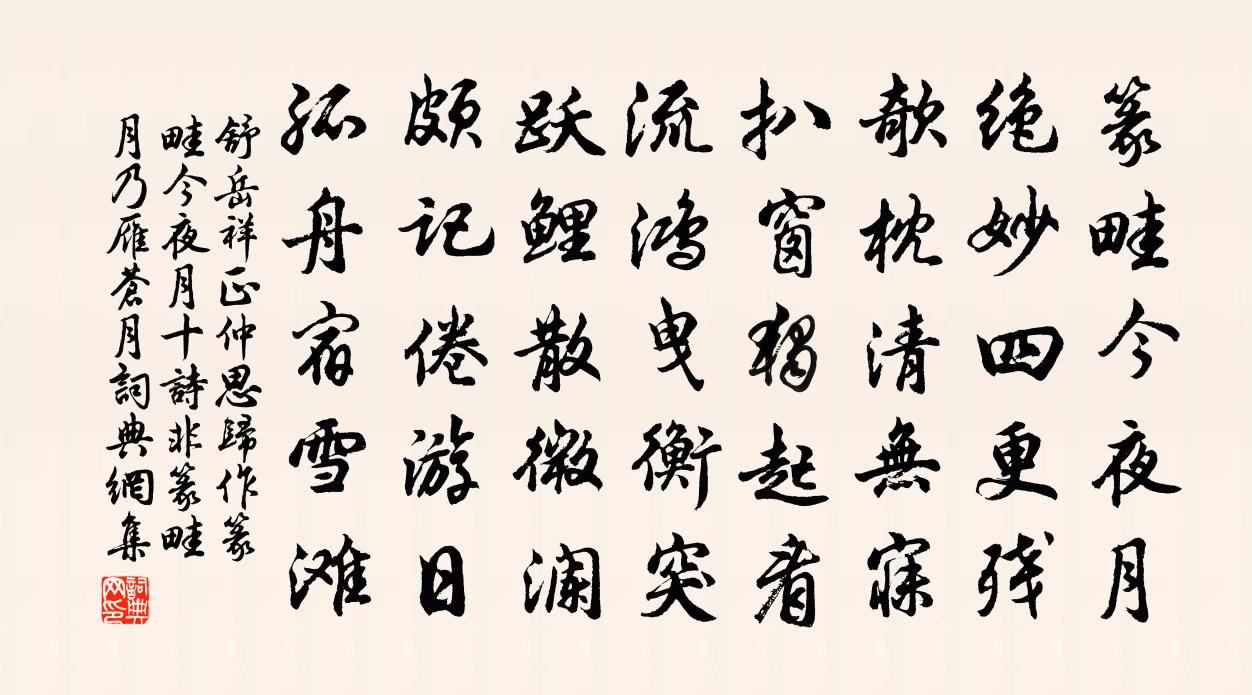 篆畦今夜月
绝妙四更残
欹枕清無寐
扒窗獨起看
流鴻曳衡突
跃鲤散微瀾
頗记倦游日
孤舟宿雪滩
舒岳祥正仲思歸作篆
畦今夜月十詩非篆畦
月乃雁蒼月詞典網集
詞典网印